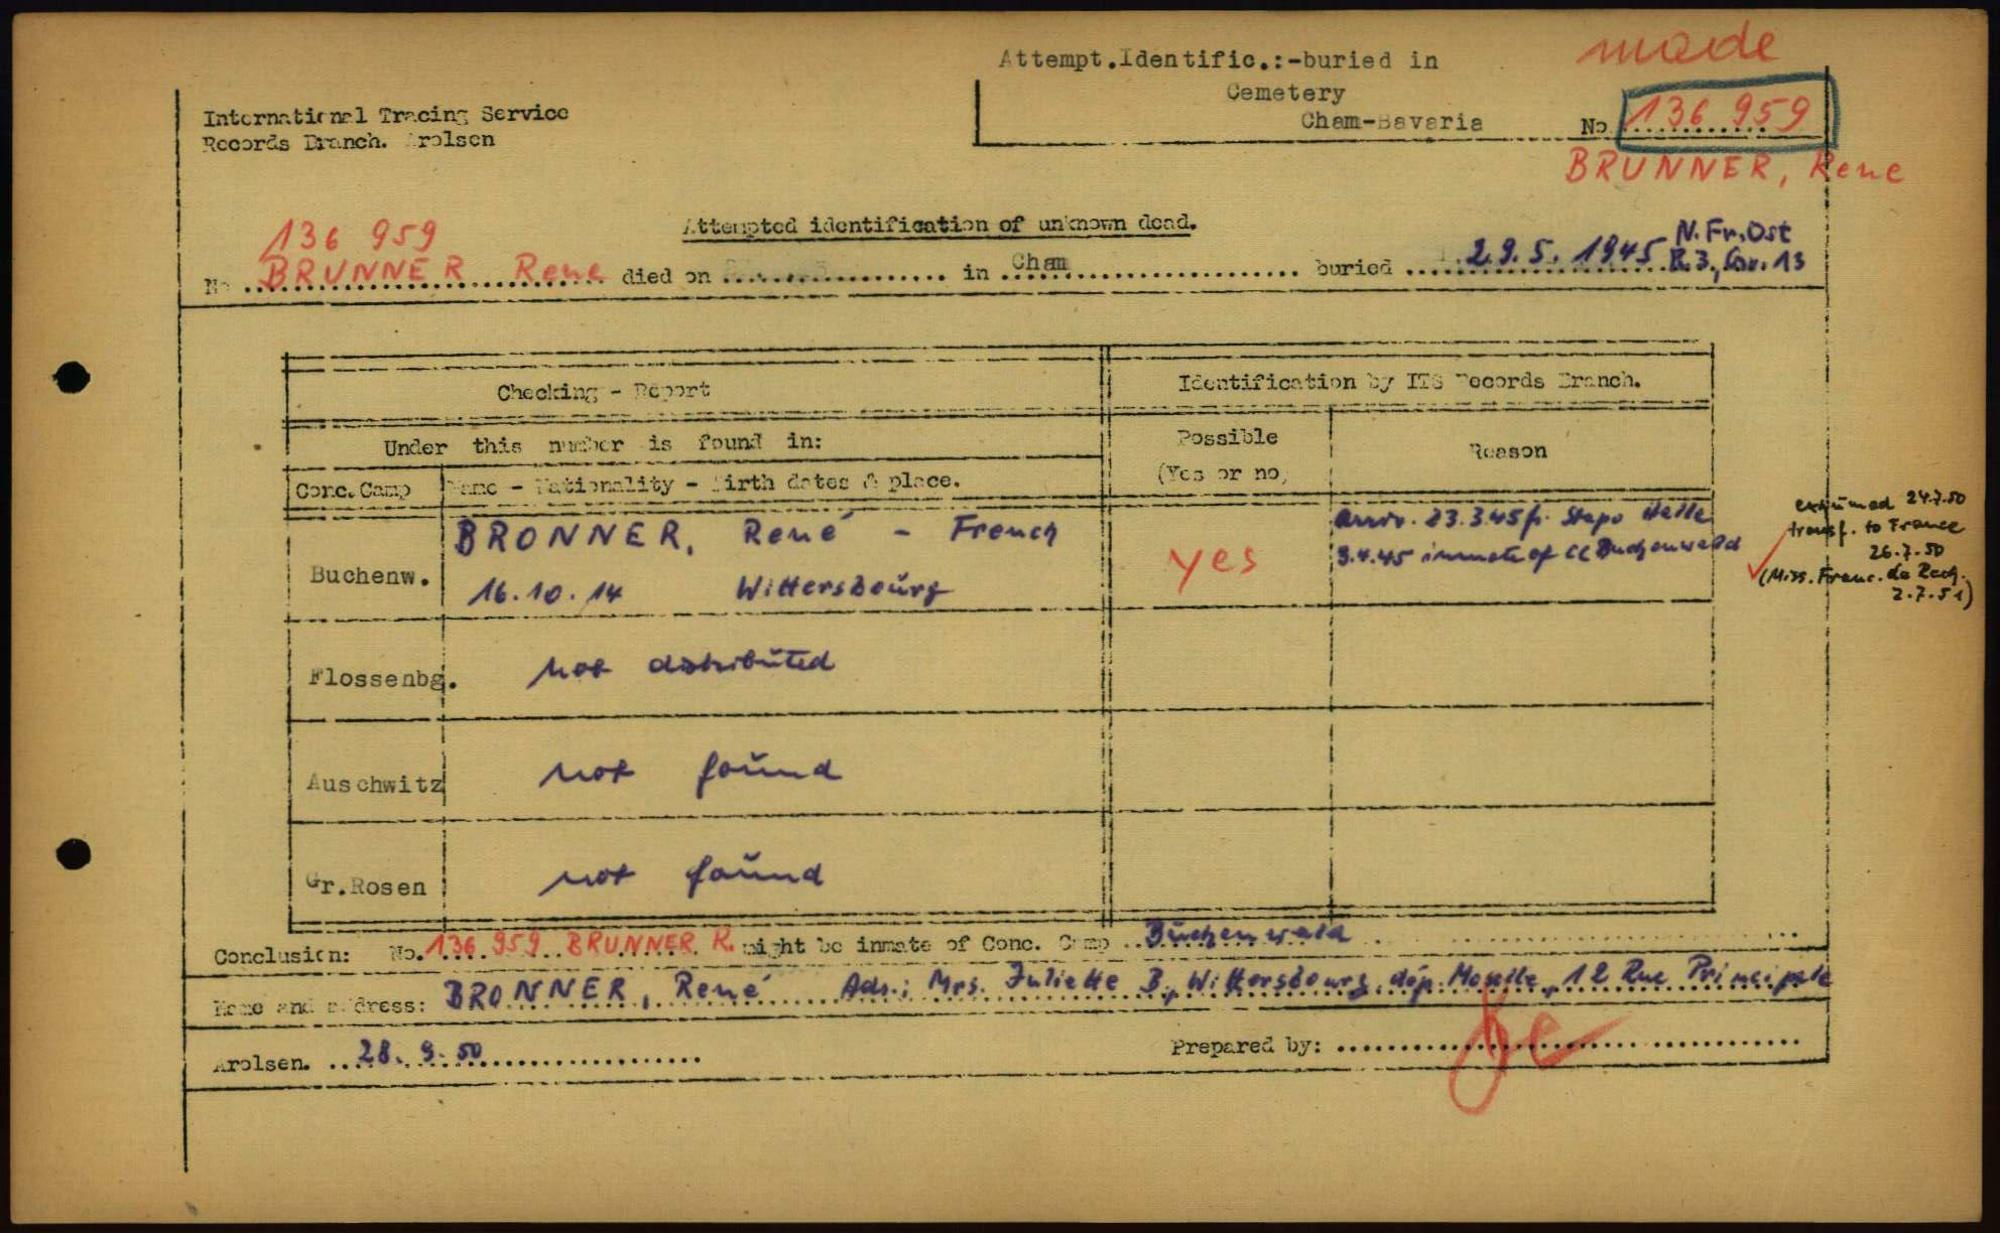 made
Attempt.Identific.:-buried in
Cemetery
Cham-Bavaria
No 136 959
BRUNNER, Rene
International Tracing Service
Records Branch. Arolsen
Attempted identification of unknown dead.
136 959
No BRUNNER Rene died on .......... in Cham .......... buried 29.5.1945 N.Fr.Ost
R.3, Gr. 13
Checking - Report
Identification by ITS Records Branch.
Under this number is found in:
Possible
(Yes or no)
Reason
Conc.Camp
Name - Nationality - Birth dates & place.
Buchenw.
BRONNER, René - French
16.10.14 Wittersbourg
yes
arriv. 23.3.45 fr. Stapo Halle
3.4.45 inmate of CC Buchenwald
exhumed 24.7.50
transf. to France
26.7.50
(Miss. Franc. de Rech.
2.7.51)
Flossenbg.
not distributed
Auschwitz
not found
Gr.Rosen
not found
Conclusion: No. 136.959 BRUNNER R. might be inmate of Conc. Camp Buchenwald
Name and address: BRONNER, René Adr.; Mrs. Juliette B., Wittersbourg, dép. Moselle, 12 Rue Principale
Arolsen. 28. 9. 50
Prepared by: